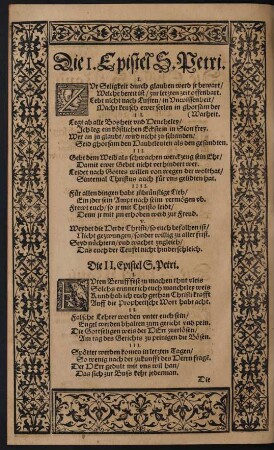 Die I. Epistel S. Petri.
I.
Zur Seligkeit durch glauben werd jr bewart/
Welche bereit ist/ zur letzten zeit offenbart.
Lebt nicht nach Lüsten/ in Unwissenheit/
Macht keusch ewer seelen in ghorsam der
(Warheit.
II
Legt ab alle Bosheit und Heucheley/
Ich leg ein köstlichen Eckstein in Sion frey.
Wer an jn glaubt/ wird nicht zu schanden/
Seid ghorsam den
III
Gebt dem Weib als schwachen werckzeug sein Ehr/
Damit ewer Gebet nicht verhindert wer.
Leidet nach Gottes willen von wegen der wolthat/
Sintemal Christus auch für uns gelitten hat.
IIII
Für allen dingen habt jnbrünstige Lieb/
Ein jder sein Ampt nach seim vermögen üb.
Frewt euch/ so jr mit Christo leidt/
Denn jr mit jm erhoben werd zur Freud.
V
Werdet die Herde Christi/ so euch befolhen ist/
Nicht gezwungen/ sonder willig zu aller frist.
Seyd nüchtern/ und wachet zugleich/
Das euch der Teufel nicht hinderschleich.
Die II. Epistel S. Petri.
I
Ewrn Beruff fest zu machen thut vleis
Solchs erinner ich euch mancherley weis
Kund hab ich euch gethan Christi krafft
Auff die Prophetische Wort habt acht.
II
Falsche Lehrer werden unter euch sein/
Engel werden bhalten zum gericht und pein.
Die Gottseligen weis der HErr zurlösen/
Am tag des Gerichts zu peinigen die Bösen.
III
Spötter werden komen in letzten Tagen/
So wenig nach der zukunfft des Herrn fragn.
Der HErr gedult mit uns wil han/
Das sich zur Buss kehr jederman.
Die